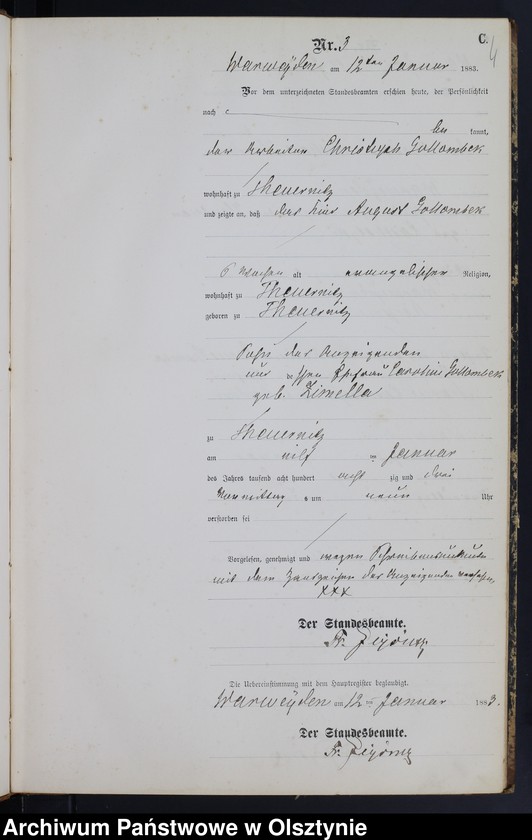 C.
4
Nr. 3
Warweÿden am 12ten Januar 1883.
Vor dem unterzeichneten Standesbeamten erschien heute, der Persönlichkeit
nach
be kannt,
der Arbeiter Christoph Gollombek
wohnhaft zu Theuernitz
und zeigte an, daß das Kind August Gollombek
6 Wochen alt evangelischer Religion,
wohnhaft zu Theuernitz
geboren zu Theuernitz
Sohn des Anzeigenden
und dessen Ehefrau Caroline Gollombek
geb. Zimella
zu Theuernitz
am elf ten Januar
des Jahres tausend acht hundert acht zig und drei
Vormittags um neun Uhr
verstorben sei
Vorgelesen, genehmigt und wegen Schreibensunkunde
mit dem Handzeichen des Anzeigenden versehen.
xxx
Der Standesbeamte.
Fr.
Die Uebereinstimmung mit dem Hauptregister beglaubigt.
Warweÿden am 12ten Januar 1883.
Der Standesbeamte.
Fr.
Archiwum Państwowe w Olsztynie